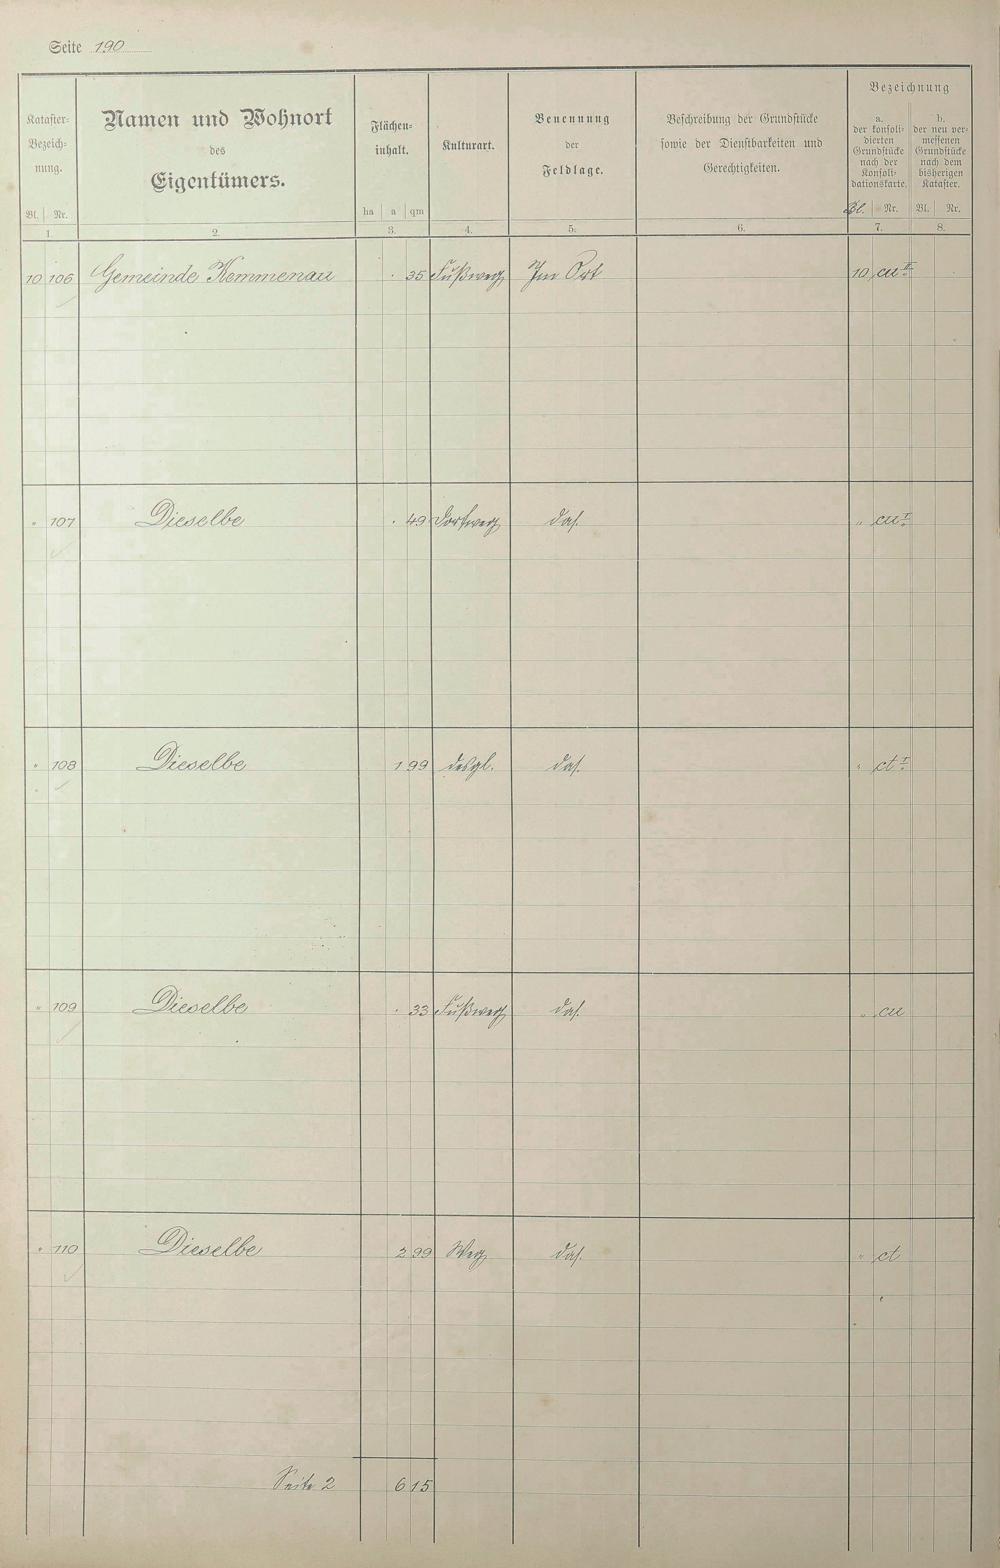 Seite 190
Kataster-Bezeichnung.
Namen und Wohnort des Eigentümers.
Flächeninhalt.
Kulturart.
Benennung der Feldlage.
Beschreibung der Grundstücke sowie der Dienstbarkeiten und Gerechtigkeiten.
Bezeichnung
a. der konsolidierten Grundstücke nach der Konsolidationskarte.
b. der neu vermessenen Grundstücke nach dem bisherigen Kataster.
Bl. Nr. ha a qm Bl. Nr. Bl. Nr.
1. 2. 3. 4. 5. 6. 7. 8.
10 106 Gemeinde Kommenau . 35 Fußweg Im Ort 10 cu II.
" 107 Dieselbe . 49 Dorfweg das. " cu I.
" 108 Dieselbe 1 99 desgl. das. " ct I.
" 109 Dieselbe . 33 Fußweg das. " cu
" 110 Dieselbe 2 99 Weg das. " ct
Seite 2 6 15